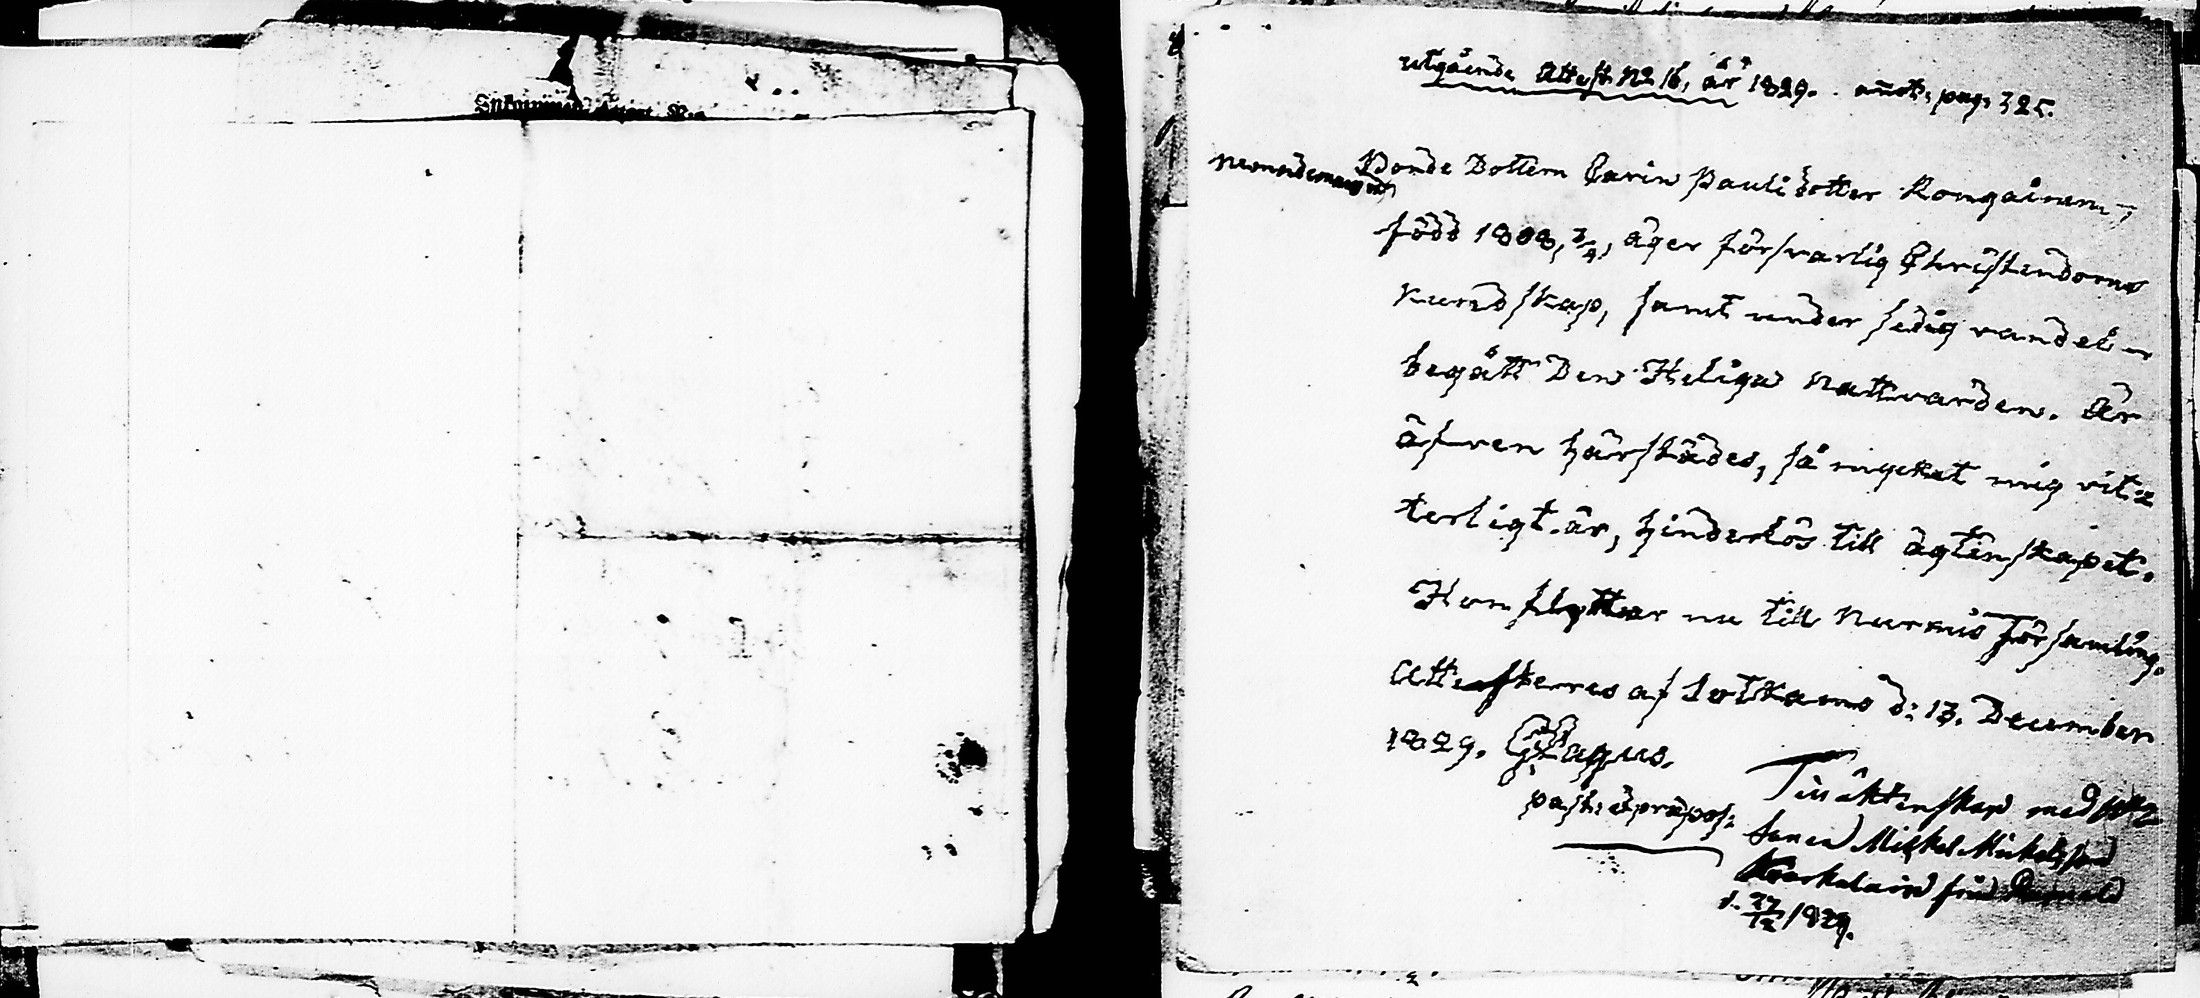 utgående Attest No 16, år 1829. annot. pag. 325.
Bonde Dottern Carin Paulidotter Rongainen,
född 1808, 3/4, äger försvarlig Christendoms
kundskap, samt under sedig vandel
begått Den Heliga Nattvarden. Är
äfven härstädes, så mycket mig vit=
terligt är, hinderlös till ägtenskapet.
Hon flyttar nu till Nurmis Församling.
Attesterres af Sotkamo d: 13. December
1829. Cagus.
past: & præpos:
Till äktenskap med
sonen Mickel Mickelsson
från
d. 27/12 1829.